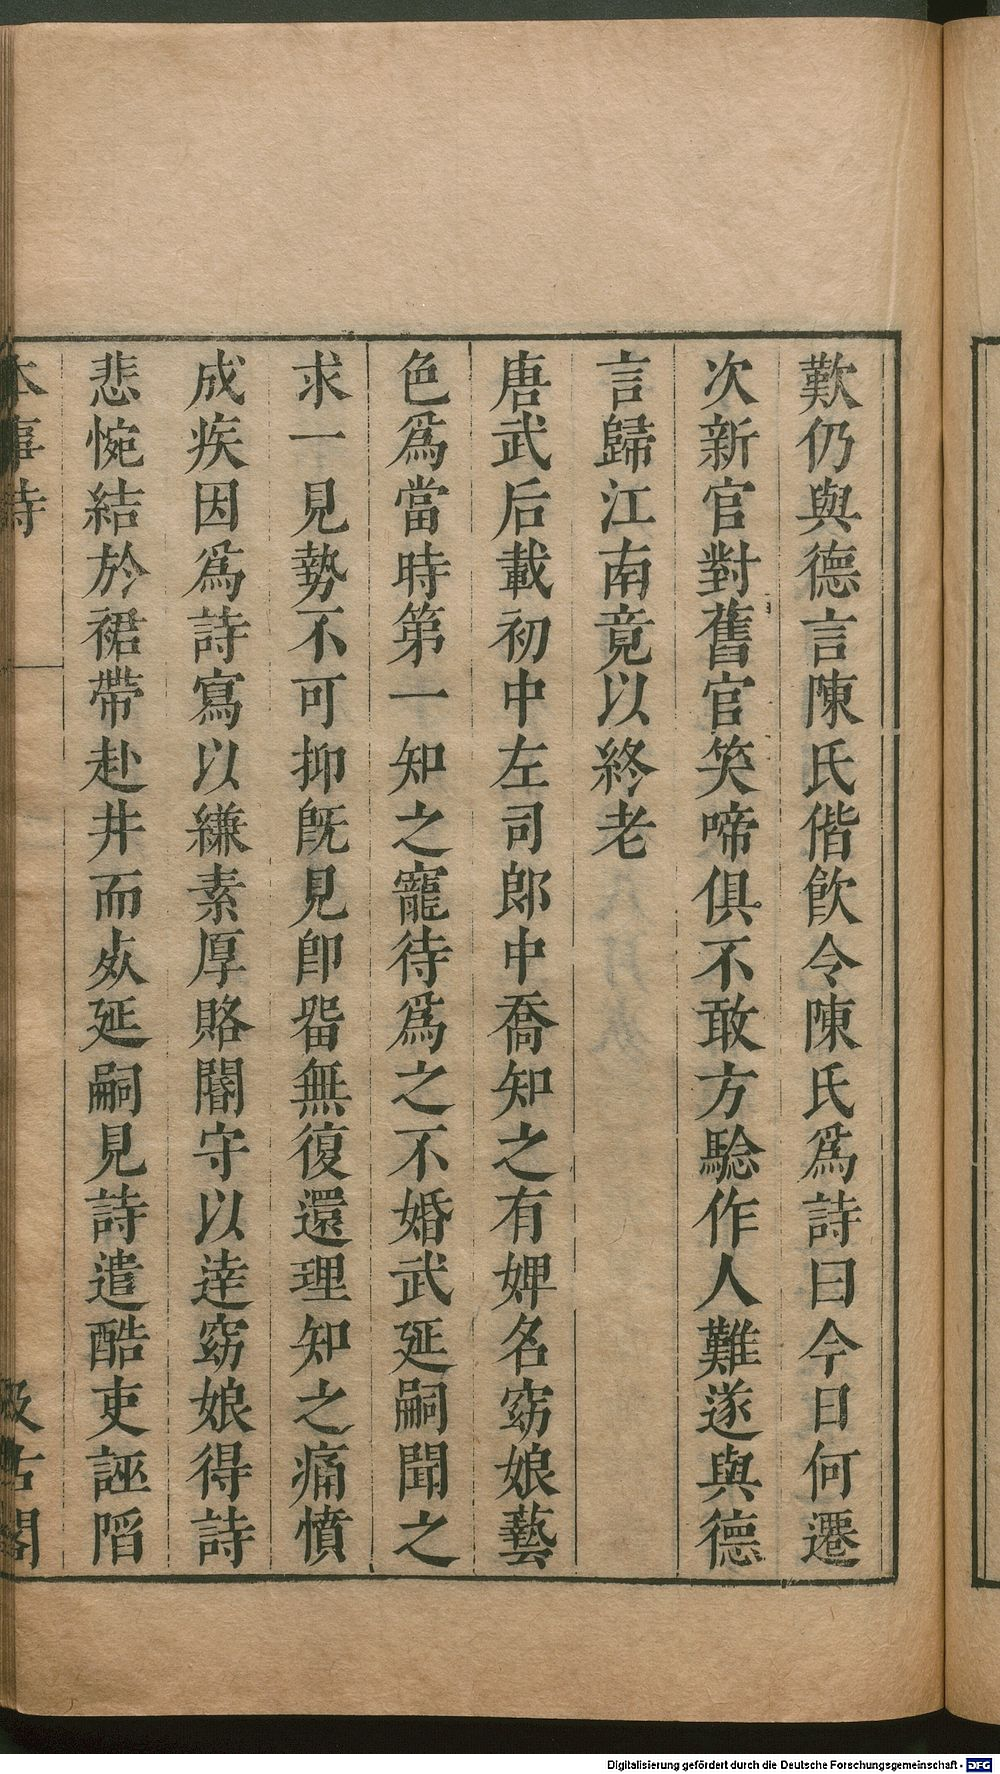 歎仍與德言陳氏偕飲令陳氏爲詩曰今日何遷
次新官對舊官笑啼俱不敢方驗作人難遂與德
言歸江南竟以終老
唐武后載初中左司郎中喬知之有婢名窈娘藝
色爲當時第一知之寵待爲之不婚武延嗣聞之
求一見勢不可抑旣見卽畱無復還理知之痛憤
成疾因爲詩寫以縑素厚賂閽守以達窈娘得詩
悲惋結於裙帶赴井而死延嗣見詩遣酷吏誣陷
本事詩
一
汲古閣
Digitalisierung gefördert durch die Deutsche Forschungsgemeinschaft - DFG